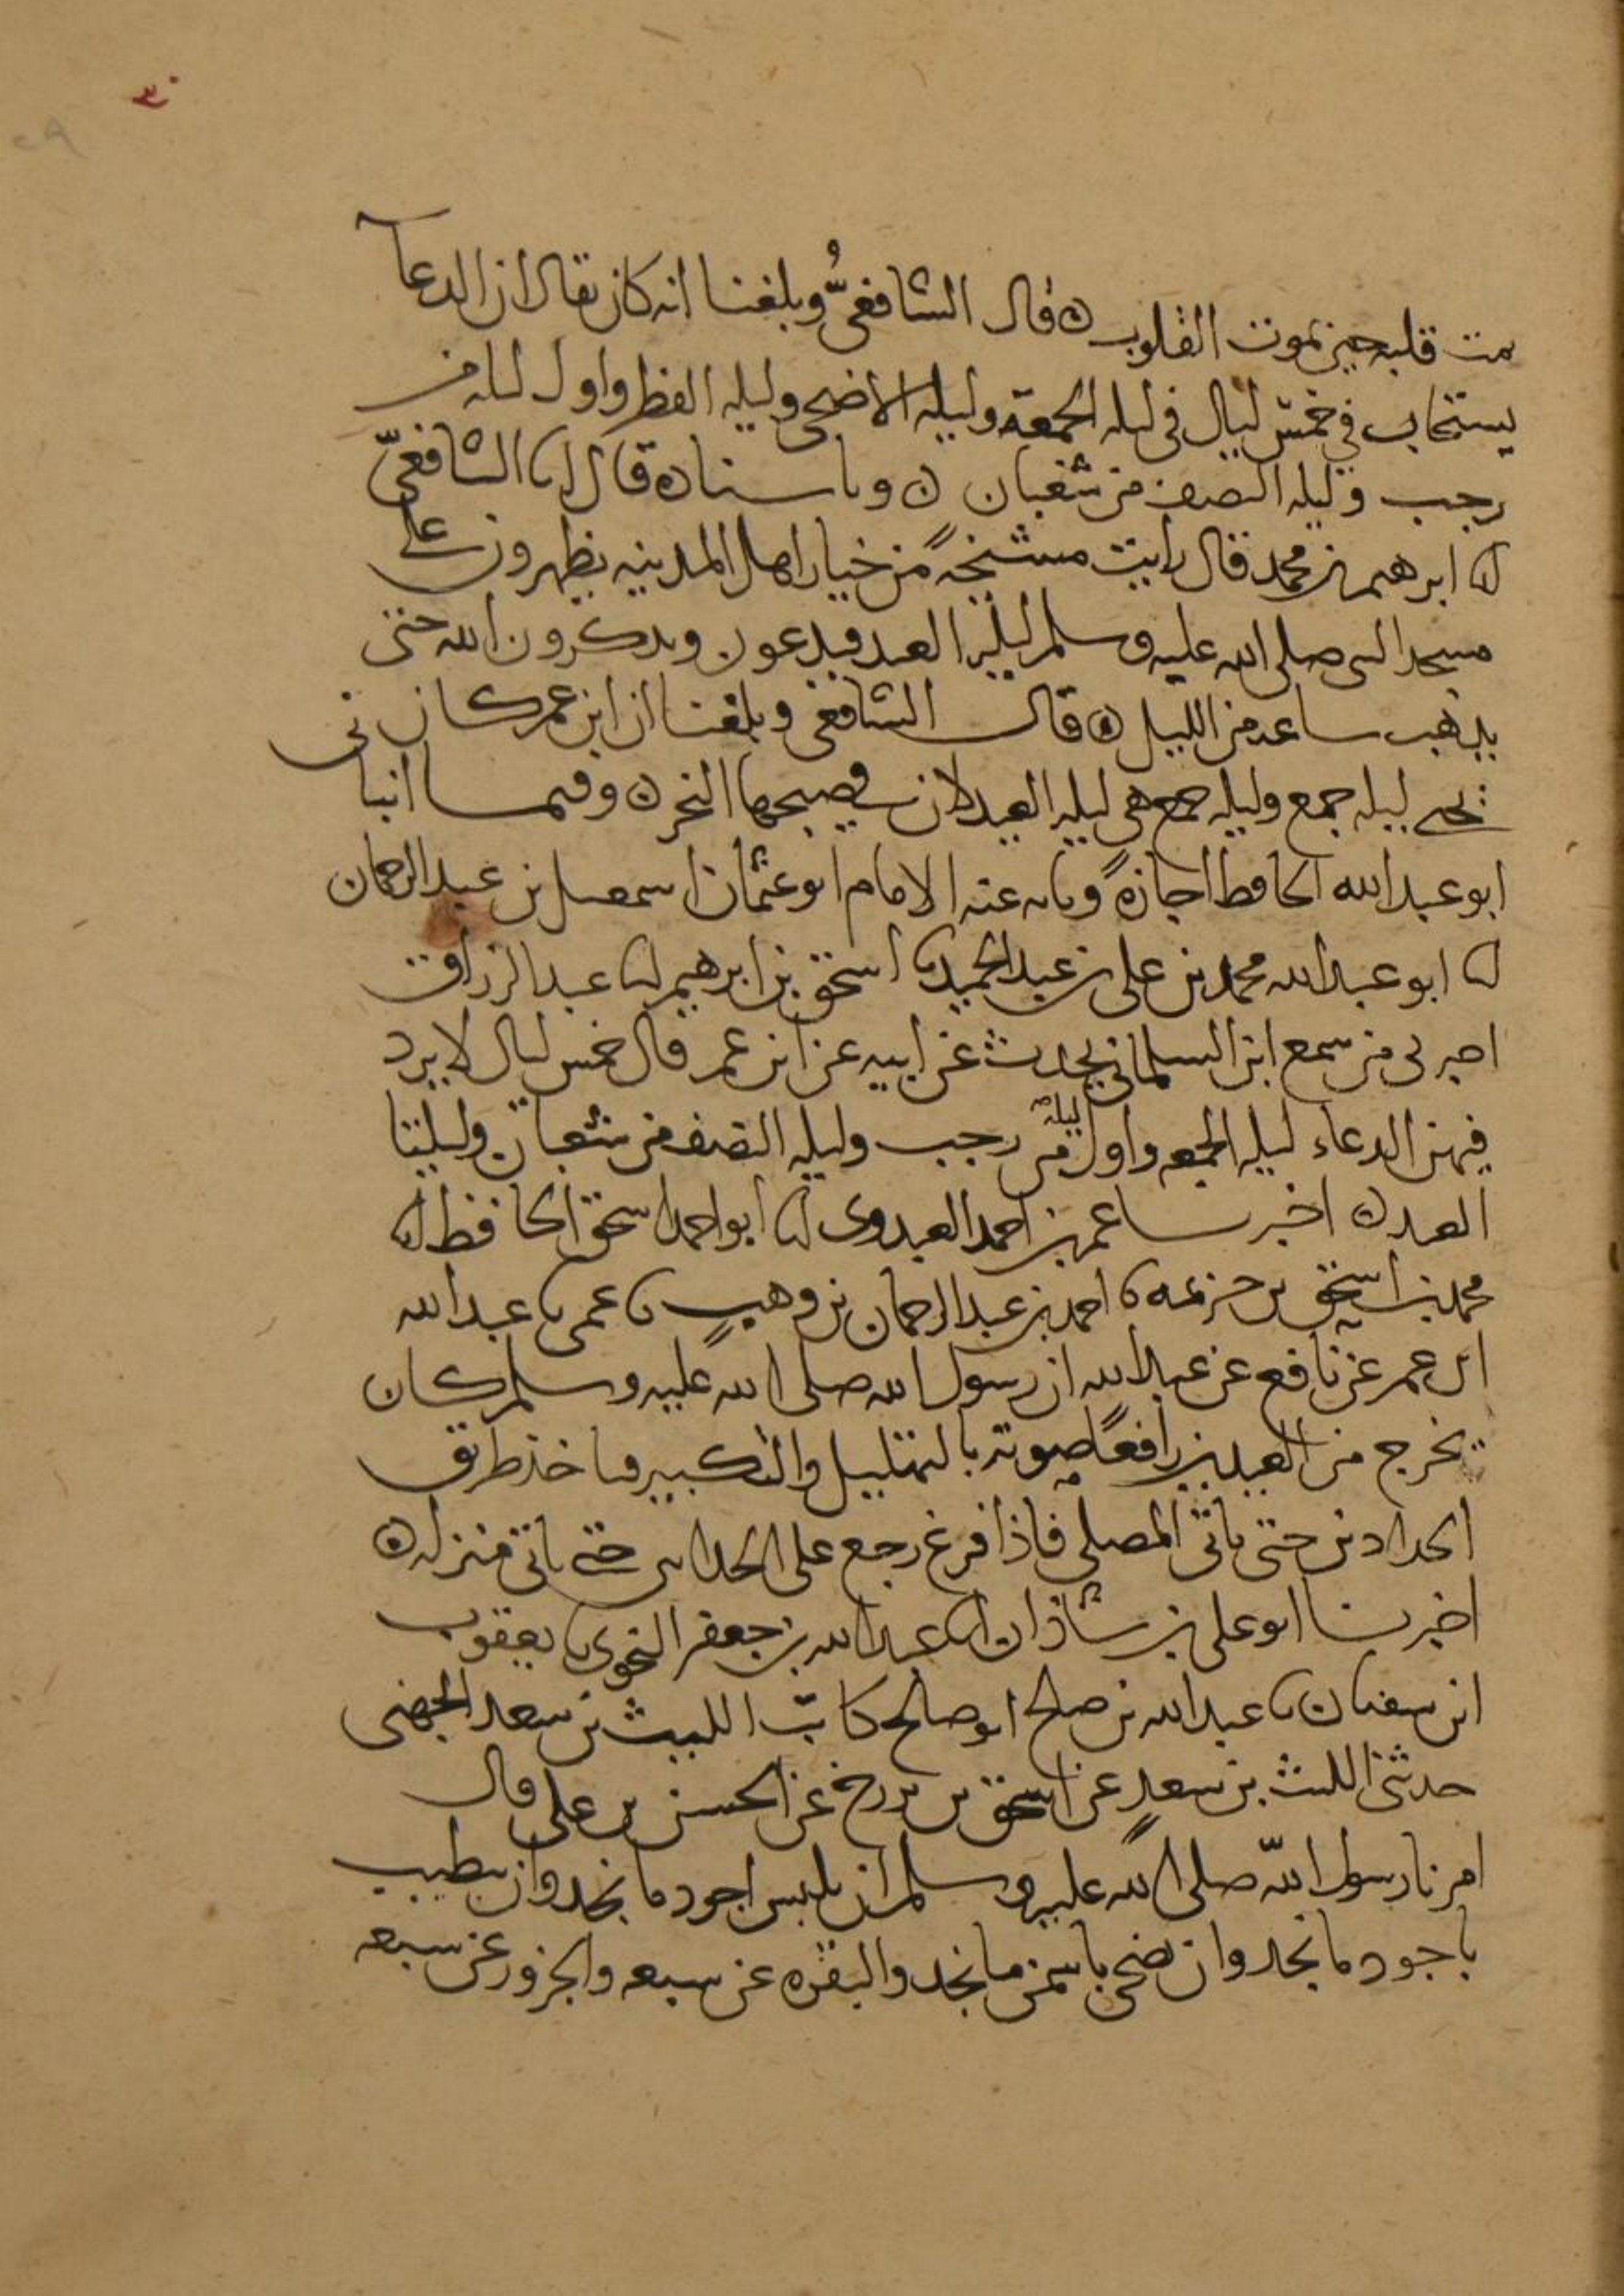 ٣٠
٢٩
يمت قلبه حين تموت القلوب ۞ قال الشافعيُّ وبلغنا انه كان يقال ان الدعا
يستجاب في خمس ليال في ليله الجمعة وليله الاضحى وليله الفطر واول ليله من
رجب وليله النصف من شعبان ۞ وباسناده قال انا الشافعيّ
انا ابرهيم بن محمد قال رايت مشيخةً من خيار اهل المدينه يظهرون على
مسجد النبي صلى الله عليه وسلم ليلة العيد فيدعون ويذكرون الله حتى
يذهب ساعه من الليل ۞ قال الشافعي وبلغنا ان ابن عمر كان
يحيي ليله جمع وليله جمع هي ليله العيد لان في صبيحها النحر ۞ وفيما انباني
ابو عبد الله الحافظ اجازةً ونابه عنه الامام ابو عثمان اسمعيل بن عبد الرحمان
انا ابو عبد الله محمد بن علي بن عبد الحميد نا اسحق بن ابرهيم انا عبد الرزاق
اخبرني من سمع ابن البيلماني يحدث عن ابيه عن ابن عمر قال خمس ليال لا يرد
فيهن الدعاء ليله الجمعه واول ليلة من رجب وليله النصف من شعبان وليلتا
العيد ۞ اخبرنا عمر بن احمد العبدوي انا ابو احمد بن اسحق الحافظ انا
محمد بن اسحق بن خزيمه نا احمد بن عبد الرحمان بن وهبٍ نا عمي نا عبد الله
ابن عمر عن نافع عن عبد الله ان رسول الله صلى الله عليه وسلم كان
يخرج من العيدين رافعًا صوته بالتهليل والتكبير فياخذ طريق
الحدادين حتى ياتي المصلى فاذا فرغ رجع على الحدادين حتى ياتي منزله ۞
اخبرنا ابو علي بن شاذان انا عبد الله بن جعفر النحوي نا يعقوب
ابن سفيان نا عبد الله بن صلح ابو صالح كاتب الليث بن سعد الجهني
حدثني الليث بن سعدٍ عن اسحق بن بزرج عن الحسن بن علي قال
امرنا رسول الله صلى الله عليه وسلم ان نلبس اجود ما نجد وان نتطيب
باجود ما نجد وان نضحي باسمن ما نجد والبقره عن سبعه والجزور عن سبعه